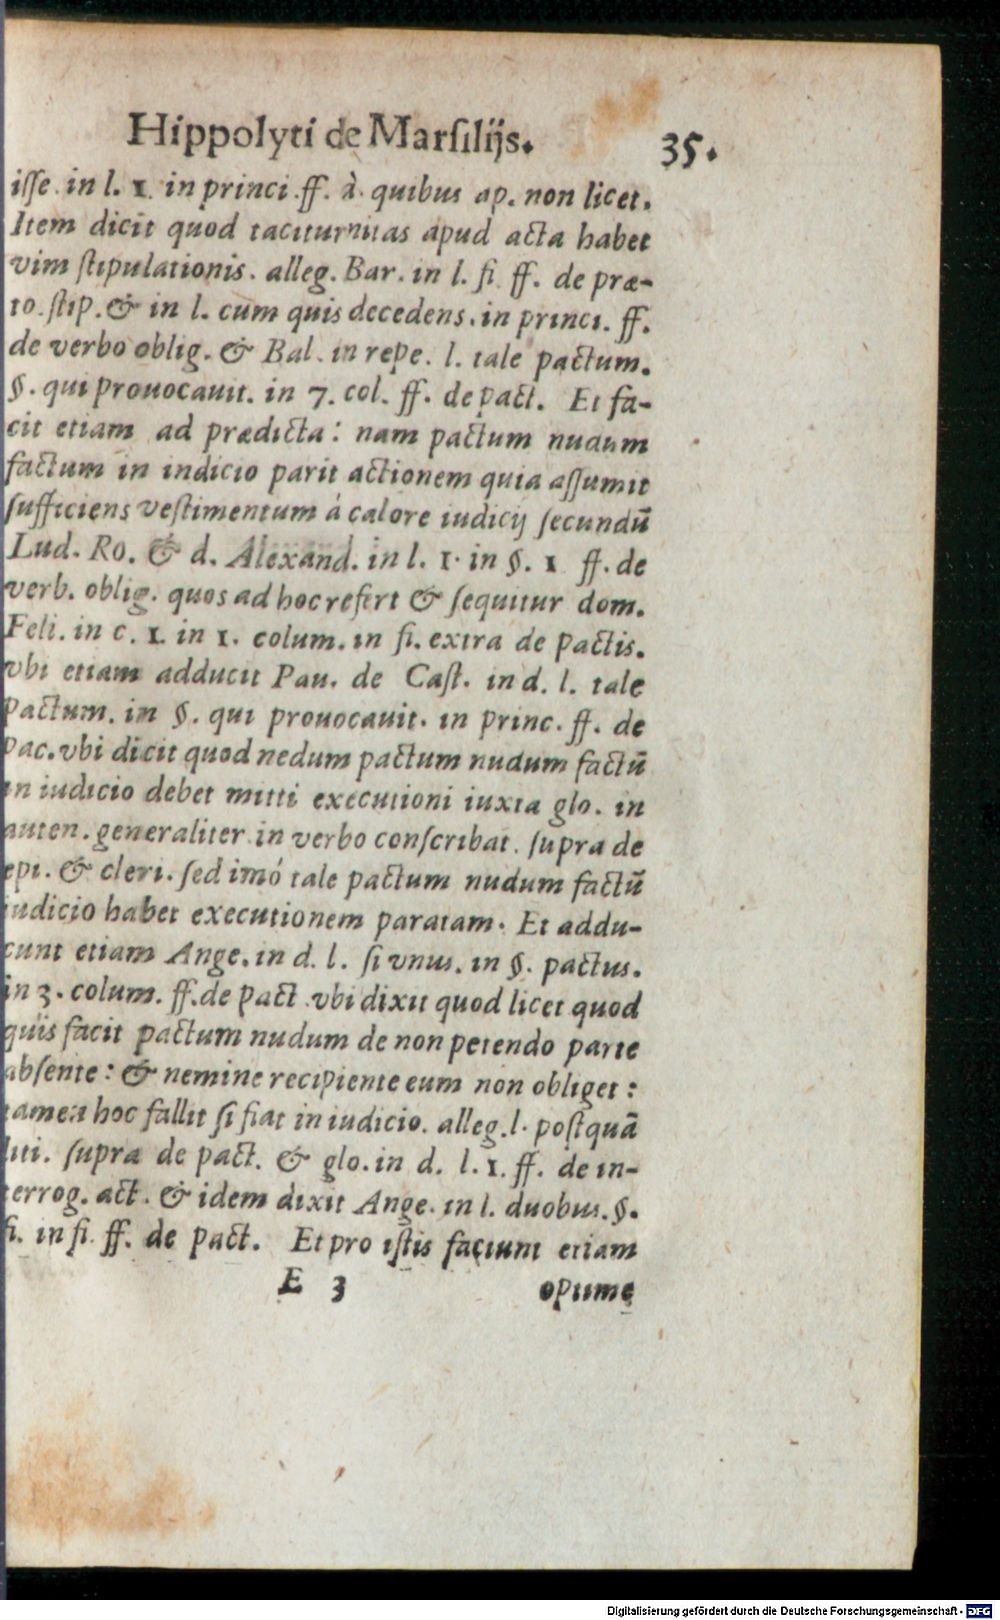 Hippolyti de Marſilijs. 35.
iſſe. in l. 1. in princi. ff. à quibus ap. non licet.
Item dicit quod taciturnitas apud acta habet
vim ſtipulationis. alleg. Bar. in l. fi. ff. de præ-
to. ſtip. & in l. cum quis decedens. in princi. ff.
de verbo oblig. & Bal. in repe. l. tale pactum.
§. qui prouocauit. in 7. col. ff. de pact. Et fa-
cit etiam ad prædicta: nam pactum nudum
factum in indicio parit actionem quia aſſumit
ſufficiens veſtimentum á calore iudicij ſecundũ
Lud. Ro. & d. Alexand. in l. 1. in §. 1 ff. de
verb. oblig. quos ad hoc refert & ſequitur dom.
Feli. in c. 1. in 1. colum. in fi. extra de pactis.
vbi etiam adducit Pau. de Caſt. in d. l. tale
pactum. in §. qui prouocauit. in princ. ff. de
pac. vbi dicit quod nedum pactum nudum factũ
in iudicio debet mitti executioni iuxta glo. in
auten. generaliter in verbo conſcribat. ſupra de
epi. & cleri. ſed imó tale pactum nudum factũ
iudicio habet executionem paratam. Et addu-
cunt etiam Ange. in d. l. ſi vnus. in §. pactus.
in 3. colum. ff. de pact vbi dixit quod licet quod
quis facit pactum nudum de non petendo parte
abſente: & nemine recipiente eum non obliget:
tamen hoc fallit ſi fiat in iudicio. alleg. l. poſtquã
liti. ſupra de pact. & glo. in d. l. 1. ff. de in-
terrog. act. & idem dixit Ange. in l. duobus. §.
fi. in fi. ff. de pact. Et pro iſtis faciunt etiam
E 3 optime
Digitalisierung gefördert durch die Deutsche Forschungsgemeinschaft - DFG